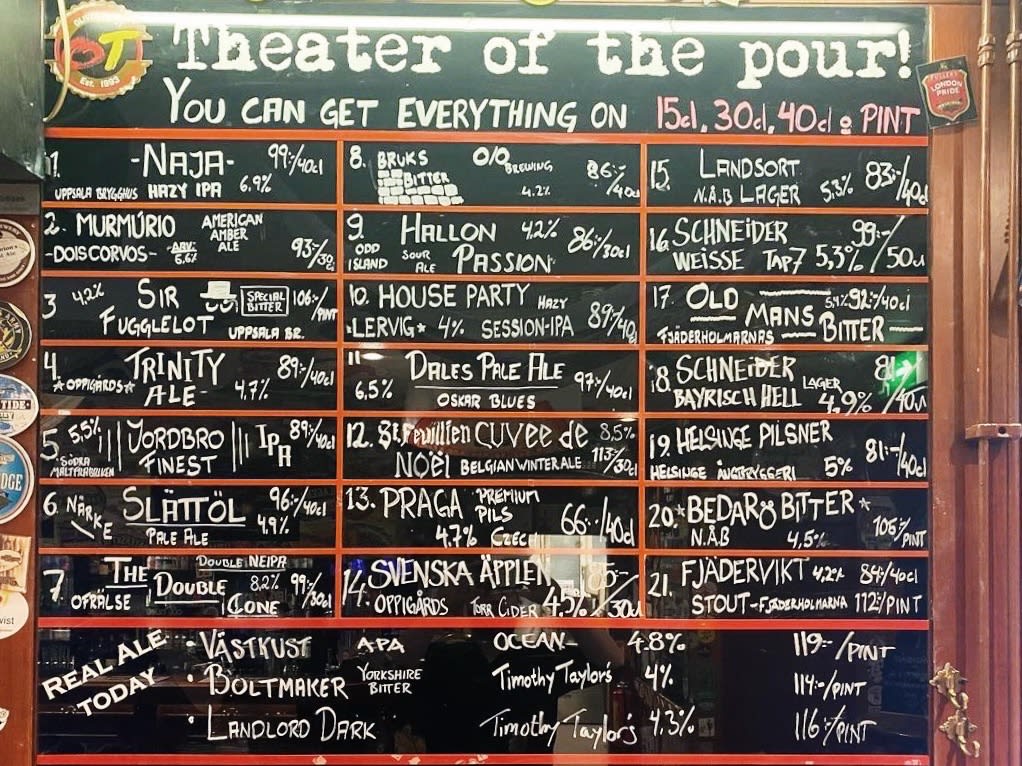 OT
Est. 1993
Theater of the pour!
YOU CAN GET EVERYTHING ON 15cl, 30cl, 40cl o PINT
FULLER'S
LONDON
PRIDE
1. -NAJA- 99:-/40cl
UPPSALA BRYGGHUS HAZY IPA 6.9%
2. MURMÚRIO AMERICAN AMBER ALE
-DOISCORVOS- ABV: 6.6% 93:-/30cl
3 4.2% SIR SPECIAL BITTER 106:-/PINT
FUGGLELOT UPPSALA BR.
4. TRINITY 89:-/40cl
*OPPIGÅRDS* ALE- 4.7%
5. 5,5% JORDBRO IPA 89:/40cl
SÖDRA MALTFABRIKEN FINEST
6. NÄRKE SLÄTTÖL 96:-/40cl
PALE ALE 4.9%
7. THE DOUBLE NEIPA
OFRÄLSE DOUBLE 8.2% 99:-/30cl
CONE
8. BRUKS O/O BREWING 86:-/40cl
BITTER 4.2%
9. HALLON 4.2% 86:-/30cl
ODD ISLAND SOUR ALE PASSION
10. HOUSE PARTY HAZY
*LERVIG* 4% SESSION-IPA 89:/40cl
11 DALES PALE ALE 97:-/40cl
6,5% OSKAR BLUES
12. St Feuillien CUVEE de 8,5%
NOËL BELGIAN WINTER ALE 113:-/30cl
13. PRAGA PREMIUM PILS 66:-/40cl
4.7% CZECH
14. SVENSKA ÄPPLEN
OPPIGÅRDS TORR CIDER 4,5% /30cl
15. LANDSORT 83:-/40cl
N.Ä.B LAGER 5,3%
16. SCHNEIDER 99:-
WEISSE TAP7 5,3% /50cl
17. OLD 5,4% 92:-/40cl
MANS
FJÄDERHOLMARNAS BITTER
18. SCHNEIDER 81:-
BAYRISCH HELL LAGER 4.9% /40cl
19. HELSINGE PILSNER 81:-/40cl
HELSINGE ÅNGBRYGGERI 5%
20. *BEDARÖ BITTER*
N.Ä.B 4,5% 106:/PINT
21. FJÄDERVIKT 4,2% 84:/40cl
STOUT-FJÄDERHOLMARNA 112:/PINT
REAL ALE
TODAY
• VÄSTKUST APA OCEAN- 4.8% 119:-/PINT
• BOLTMAKER YORKSHIRE BITTER Timothy Taylor's 4% 114:-/PINT
• LANDLORD DARK Timothy Taylor's 4,3% 116:/PINT